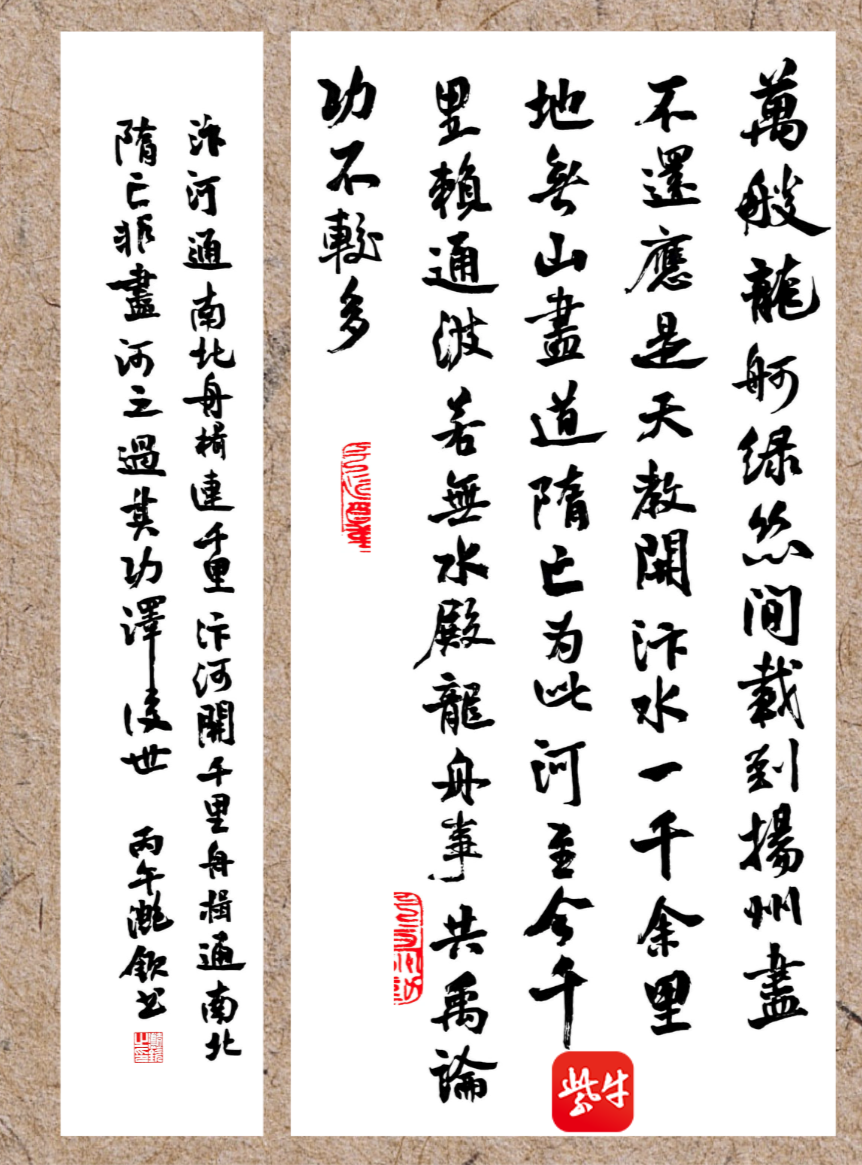 萬般龍舸绿丝间載到揚州盡
不還應是天教開汴水一千余里
地無山盡道隋亡为此河至今千
里賴通波若無水殿龍舟事共禹論
功不較多
汴河通南北舟楫連千里汴河開千里舟楫通南北
隋亡非盡河之過其功澤後世 丙午欽书
紫牛